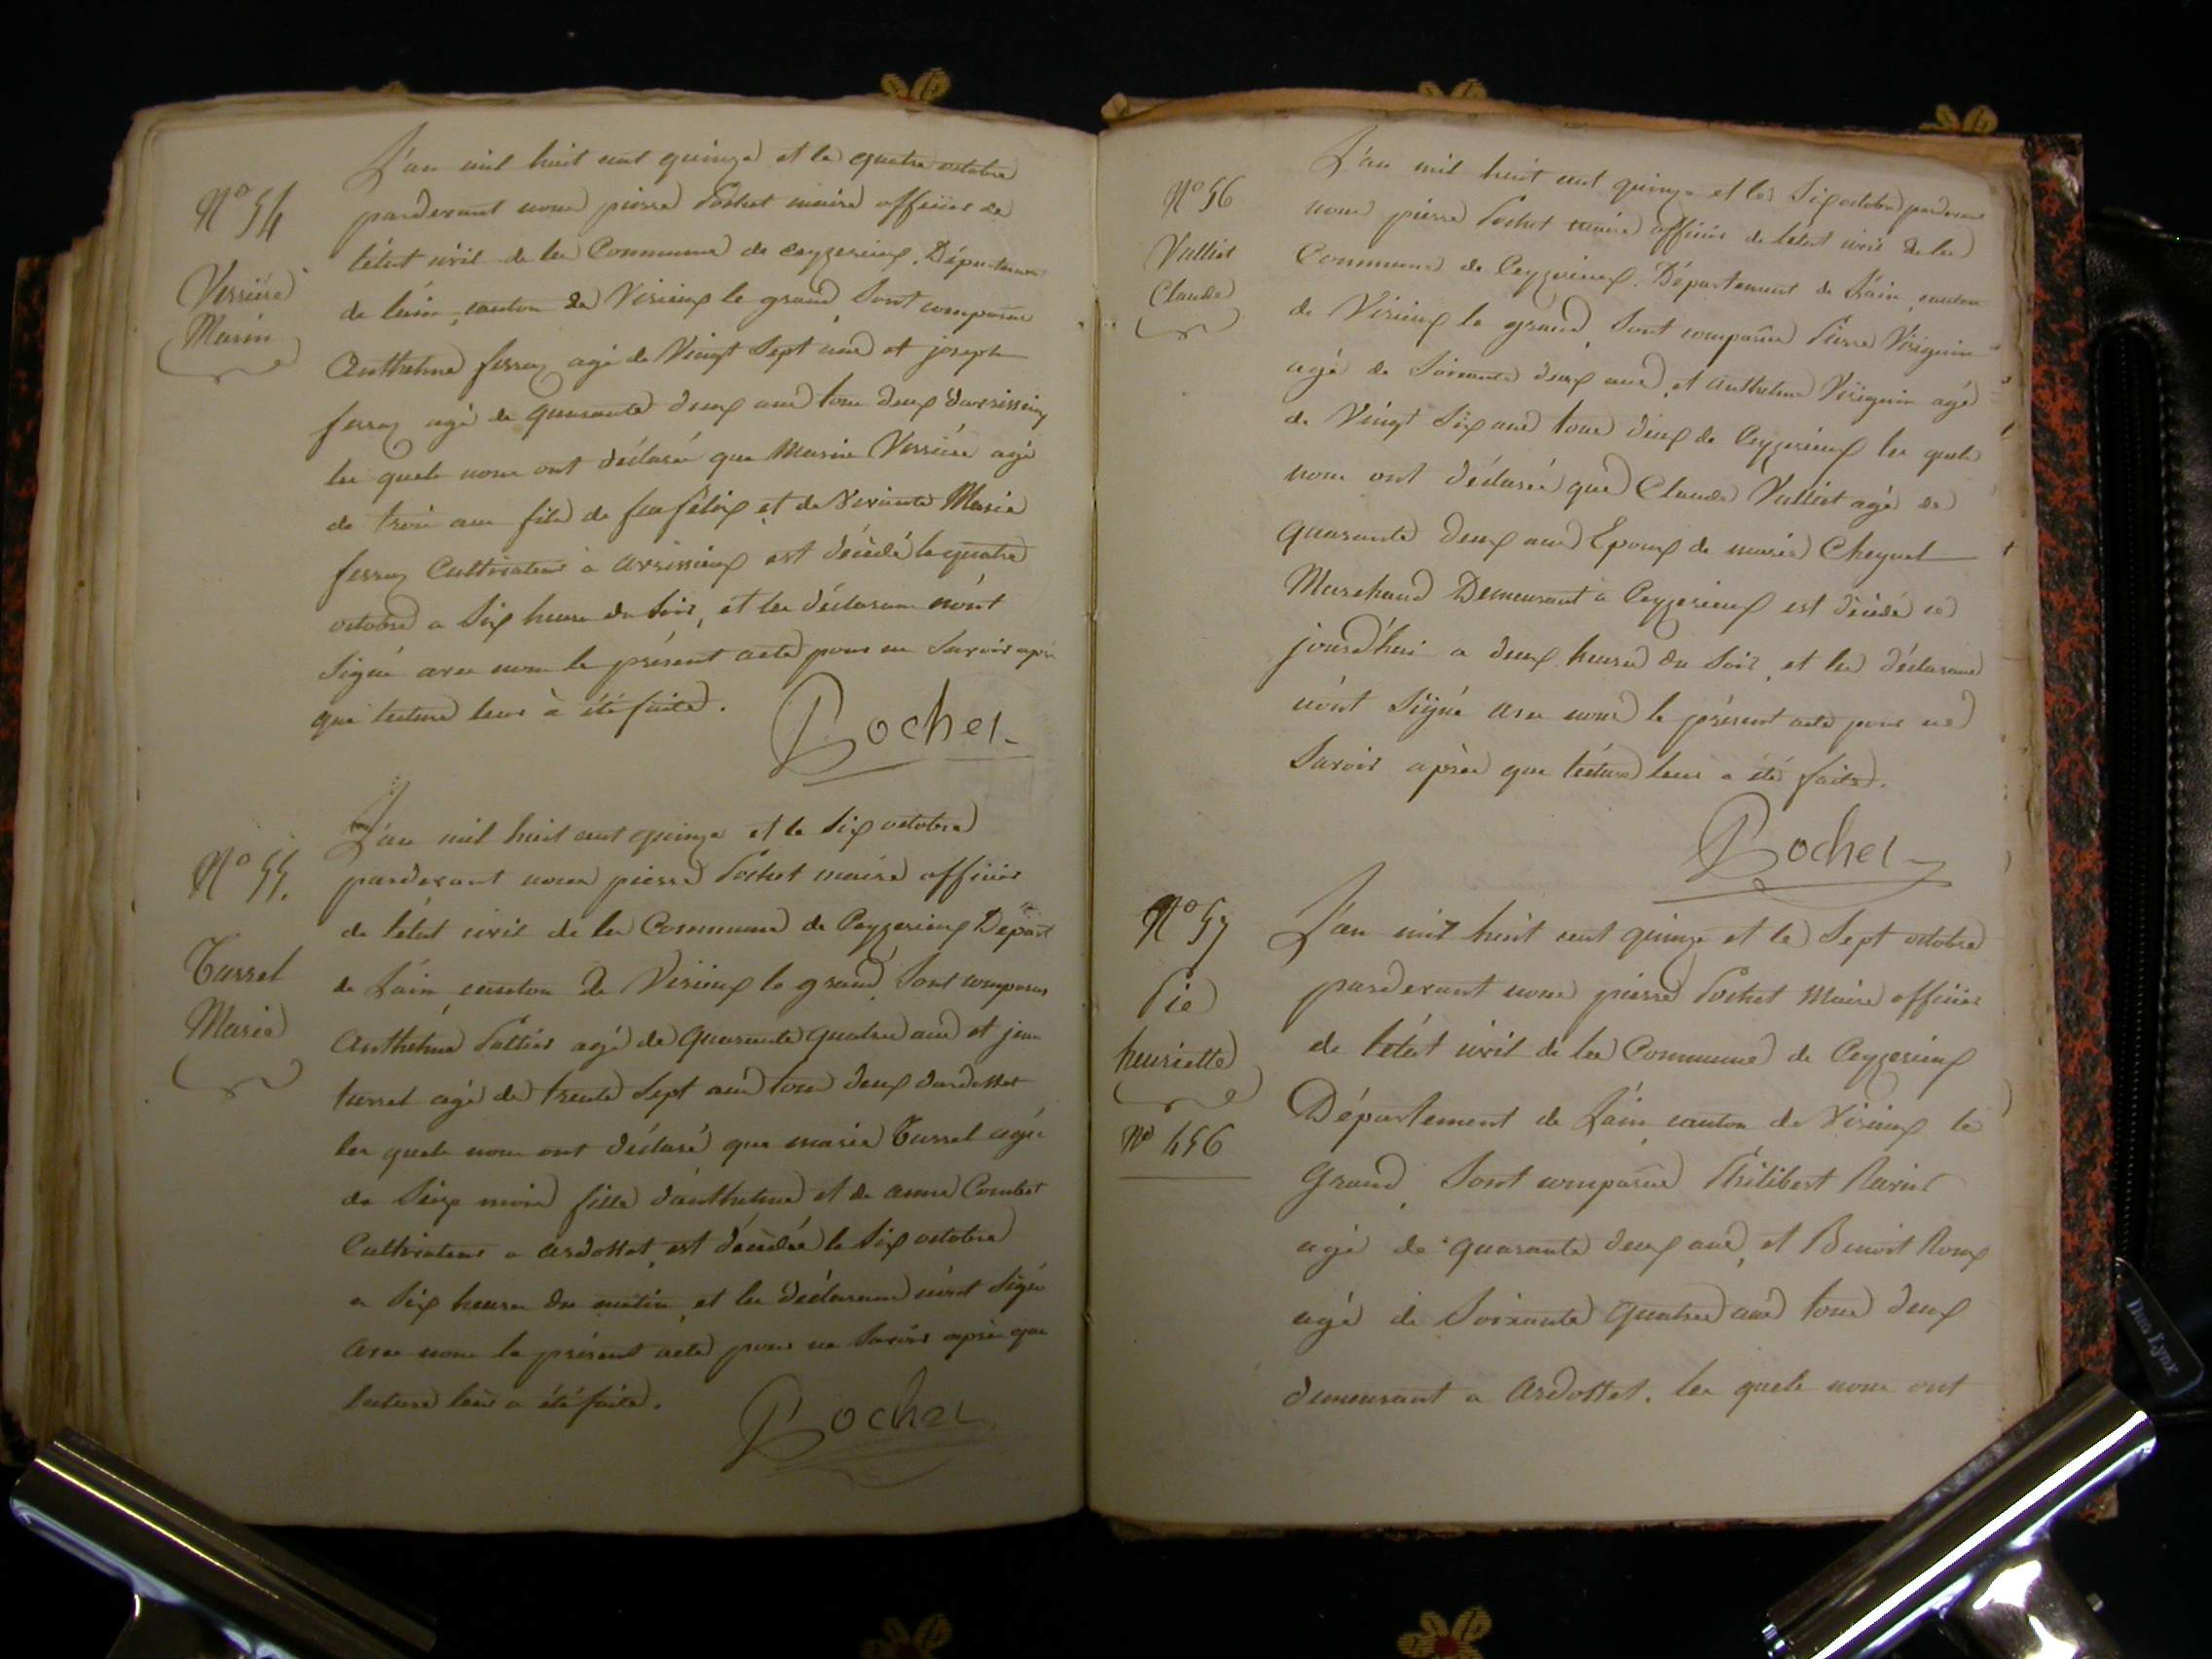 L'an mil huit cent quinze et le quatre octobre
N° 54
pardevant nous pierre Pochet maire officier de
l'état civil de la Commune de ceyzerieux. Département
Verriéré
Marin
de l'ain, canton de Virieux le grand, sont comparus
Anthelme ferraz agé de Vingt Sept ans et joseph
ferraz agé de quarante deux ans tous deux d'avrissieux
les quels nous ont déclaré que Marin Verriére agé
de trois ans fils de feu félix et de Vivante Marie
ferraz Cultivateur à avrissieux est décédé le quatre
octobre a Six heures du Soir, et les déclarans n'ont
Signé avec nous le présent acte pour ne Savoir après
que lecture leur à été faite.
Pochet
L'an mil huit cent quinze et le Six octobre
N° 55.
pardevant nous pierre Pochet maire officier
de l'état civil de la Commune de Ceyzerieux Départ
Turrel
Marie
de L'ain, canton de Virieux le grand, Sont comparus
Anthelme Pattier agé de quarante quatre ans et jean
turrel agé de trente Sept ans tous deux d'ardosset
les quels nous ont déclaré que marie Turrel agée
de Seize mois fille d'anthelme et de anne Combet
Cultivateur a ardosset, est décédée le Six octobre
a Six heures du matin, et les déclarans n'ont Signé
avec nous le présent acte pour ne Savoir après que
lecture leur a été faite.
Pochet
L'an mil huit cent quinze et le Six octobre pardevant
N° 56
Valliet
Claude
nous pierre Pochet maire officier de l'état civil de la
Commune de Ceyzerieux. Département de L'ain, canton
de Virieux le grand, Sont comparus Pierre Viriguin
agé de Soixante deux ans, et anthelme Viriguin agé
de Vingt Six ans tous deux de Ceyzerieux les quels
nous ont déclaré que Claude Valliet agé de
quarante deux ans Epoux de marie Cheynel
Marchand Demeurant à Ceyzerieux est décédé ce
jourd'hui a deux heures du Soir, et les déclarans
n'ont Signé avec nous le présent acte pour ne
Savoir après que lecture leur a été faite.
Pochet
N° 57
Pie
henriette
N° 456
L'an mil huit cent quinze et le Sept octobre
pardevant nous pierre Pochet Maire officier
de l'état civil de la Commune de Ceyzerieux
Département de L'ain, canton de Virieux le
Grand, Sont comparus Philibert Ravier
agé de quarante deux ans, et Benoit Roux
agé de Soixante quatre ans tous deux
demeurant a Ardosset. les quels nous ont
Duo Lynx